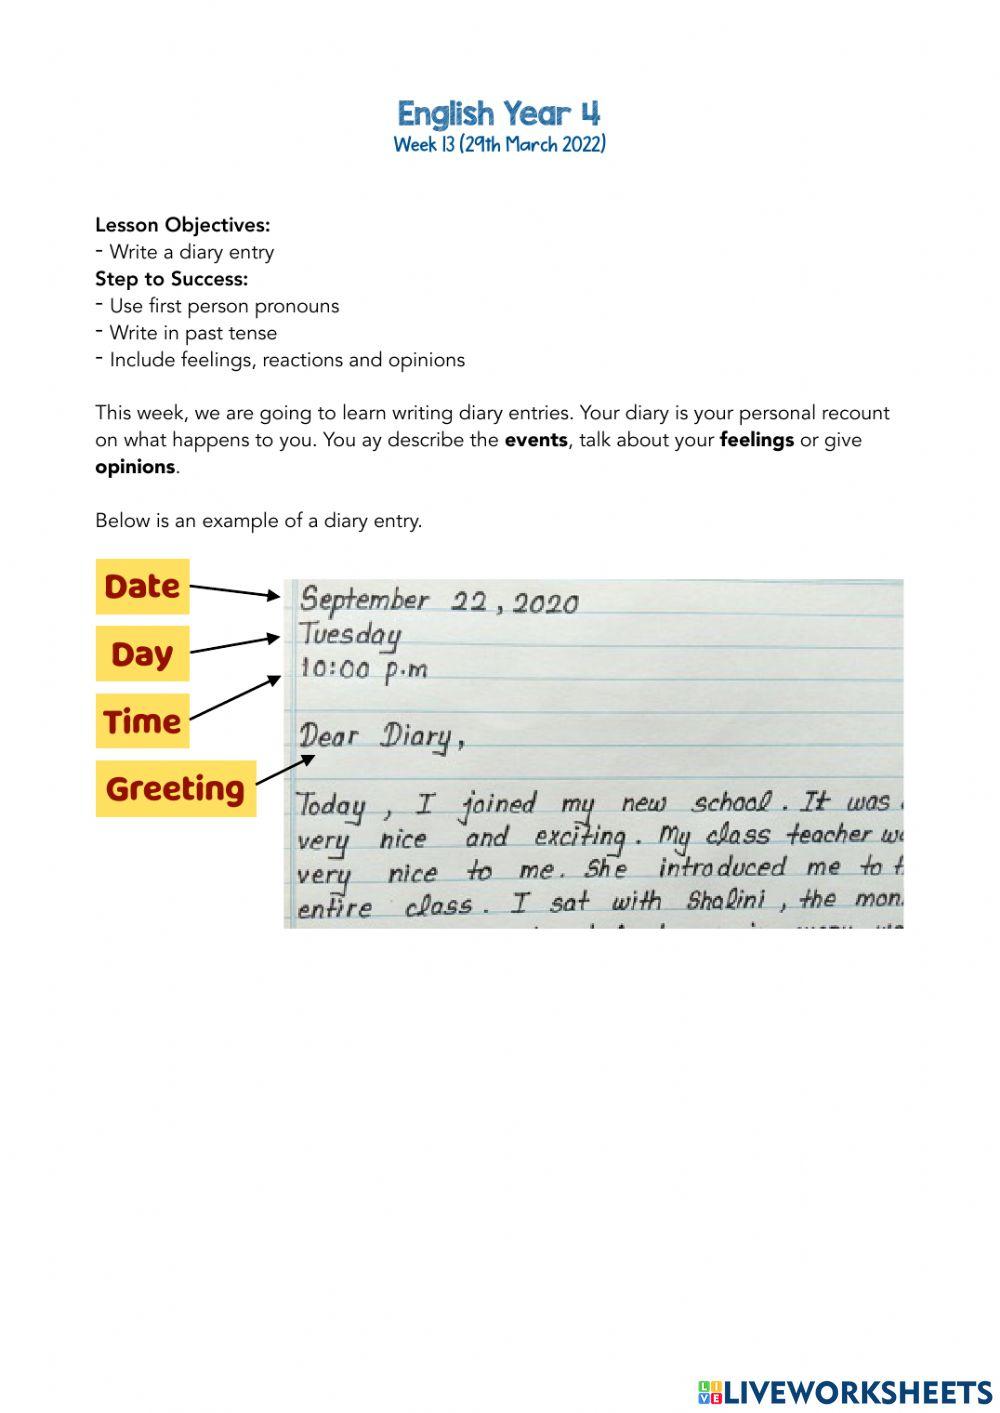 English Year 4
Week 13 (29th March 2022)
Lesson Objectives:
- Write a diary entry
Step to Success:
- Use first person pronouns
- Write in past tense
- Include feelings, reactions and opinions
This week, we are going to learn writing diary entries. Your diary is your personal recount
on what happens to you. You ay describe the events, talk about your feelings or give
opinions.
Below is an example of a diary entry.
Date
September 22, 2020
Day
Tuesday
Time
10:00 p.m
Greeting
Dear Diary,
Today, I joined my new school. It was
very nice and exciting. My class teacher
very nice to me. She introduced me to
entire class. I sat with Shalini, the
LIVEWORKSHEETS